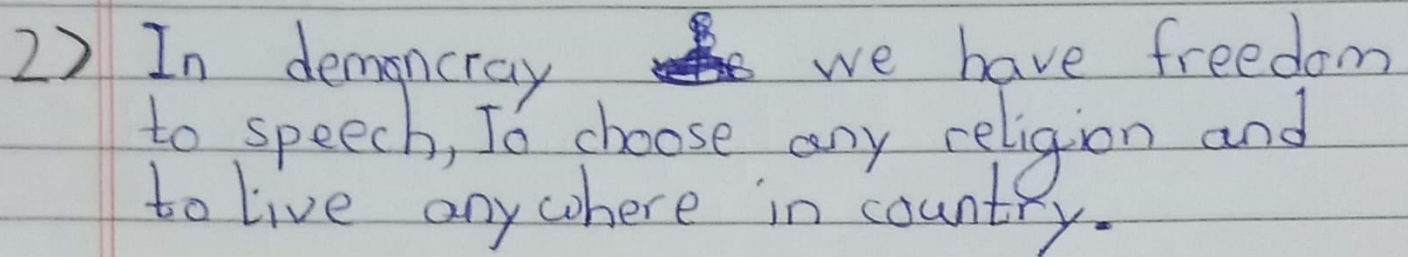 2) In demancray we have freedom
to speech, To choose any religion and
to live any where in country.